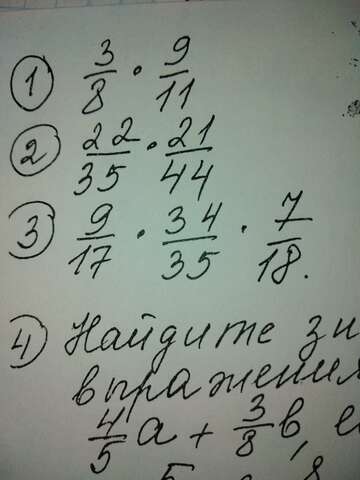 1 3/8 · 9/11
2 22/35 · 21/44
3 9/17 · 34/35 · 7/18.
4) Найдите
выражения
4/5 a + 3/8 b,